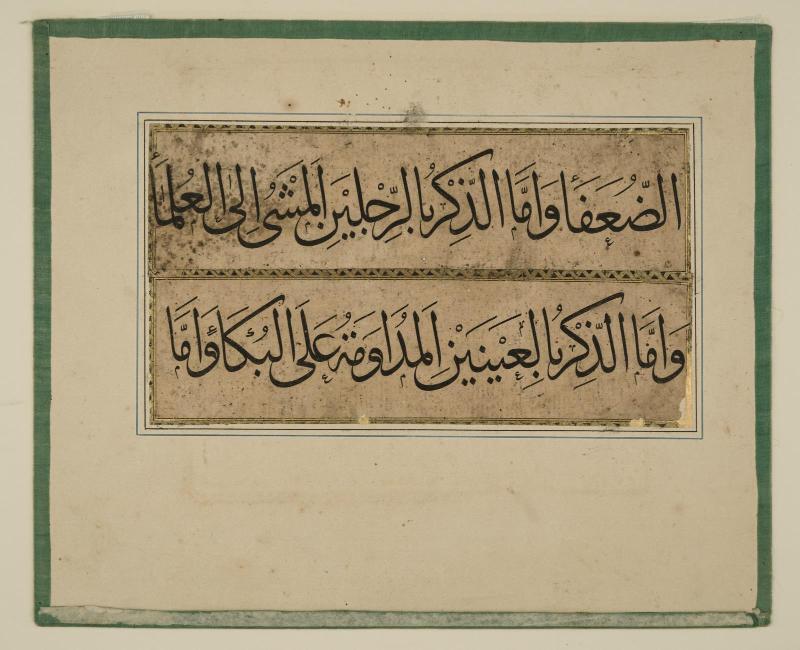 الضُّعَفَاءِ وَاَمَّا الذِّكْرُ بِالرِّجْلَيْنِ اَلْمَشْىُ اِلَى الْعُلَمَاءِ
وَاَمَّا الذِّكْرُ بِالْعَيْنَيْنِ اَلْمُدَاوَمَةُ عَلَى الْبُكَاءِ وَاَمَّا